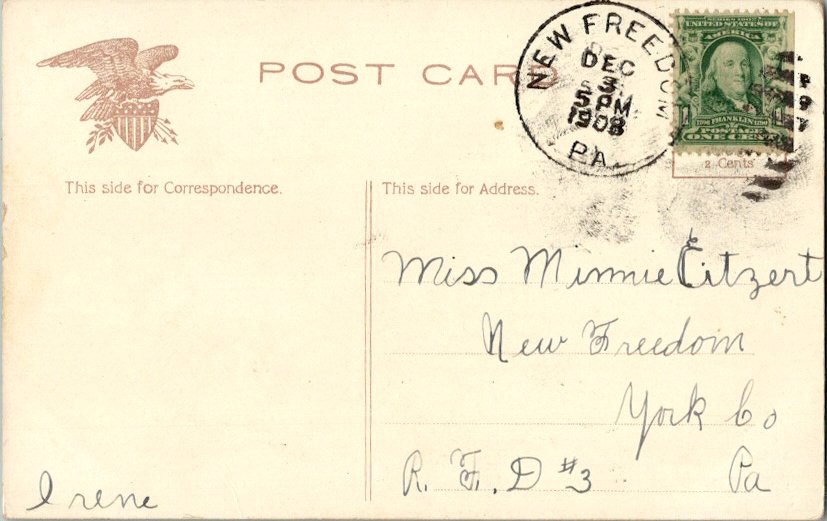 POST CARD
NEW FREEDOM
DEC
3
5 PM
1908
PA.
SERIES 1902
UNITED STATES OF
AMERICA
1706 FRANKLIN 1790
POSTAGE
ONE CENT
2 Cents
This side for Correspondence.
This side for Address.
Miss Minnie Eitzert
New Freedom
York Co
R. F. D #3 Pa
Irene